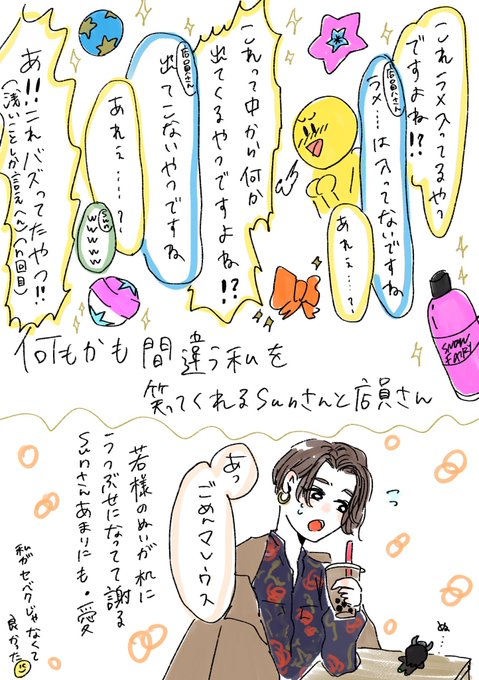 これラメ入ってるやつ
ですよね!?
店員さん
ラメ…は入ってないですね
あれぇ……?
これって中から何か
出てくるやつですよね!?
店員さん
出てこないやつですね
あれぇ……?
sun
wwww
あ!!これバズってたやつ!!
(浅いことしか言えへん)(n回目)
SNOW
FAIRY
何もかも間違う私を
笑ってくれるsunさんと店員さん
あっ
ごめんマレウス
若様のぬいが机に
うつぶせになってて謝る
sunさんあまりにも・愛
私がセベクじゃなくて
良かった
ぬ…